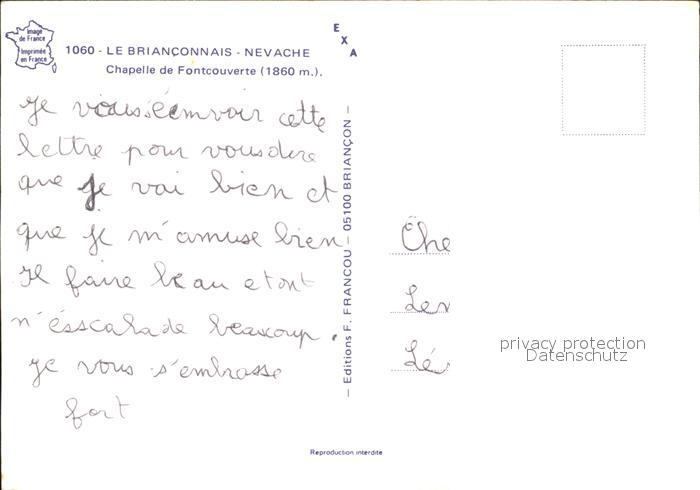 Image
de France
Imprimée
en France
1060 - LE BRIANÇONNAIS - NEVACHE
Chapelle de Fontcouverte (1860 m.).
E
X
A
Je vous éemvoir cette
lettre pour vous dire
que je vai bien et
que je m'amuse bien
Il faire beau et ont
n'ésscalade beaucoup.
je vous s'embrasse
fort
— Editions F. FRANCOU — 05100 BRIANÇON —
Che
Lé
privacy protection
Datenschutz
Reproduction interdite